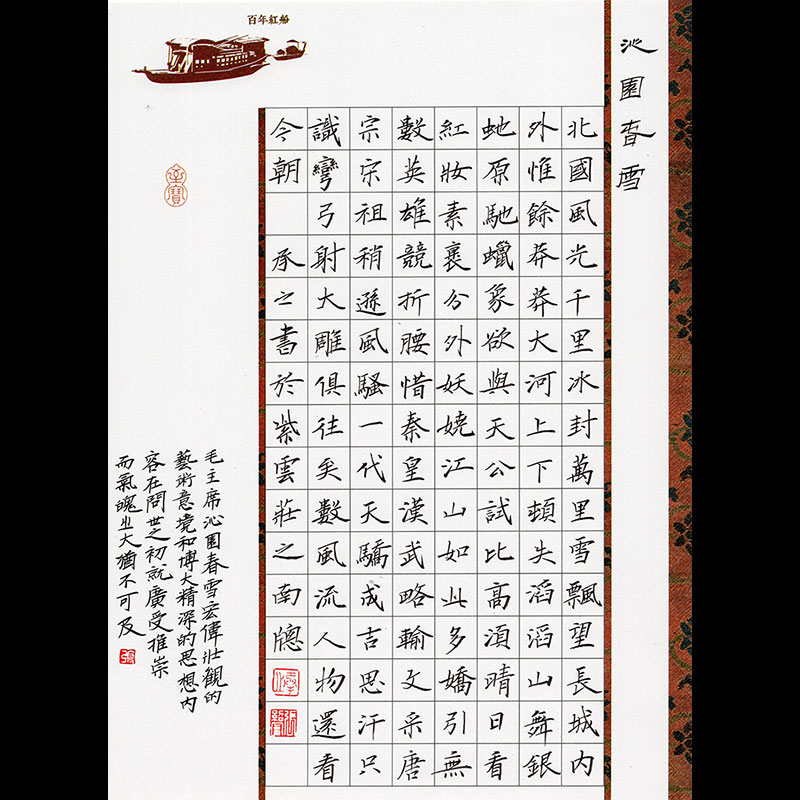 百年紅船
沁園春雪
北國風光千里冰封萬里雪飄望長城内
外惟餘莽莽大河上下頓失滔滔山舞銀
虵原馳蠟象欲與天公試比高湏晴日看
紅妝素裹分外妖嬈江山如此多嬌引無
數英雄競折腰惜秦皇漢武略輸文采唐
宗宋祖稍遜風騷一代天驕成吉思汗只
識彎弓射大雕俱往矣數風流人物還看
今朝 承之書於紫雲莊之南牕
毛主席沁園春雪宏偉壯觀的
藝術意境和博大精深的思想内
容在問世之初就廣受推崇
而氣魄大猶不可及